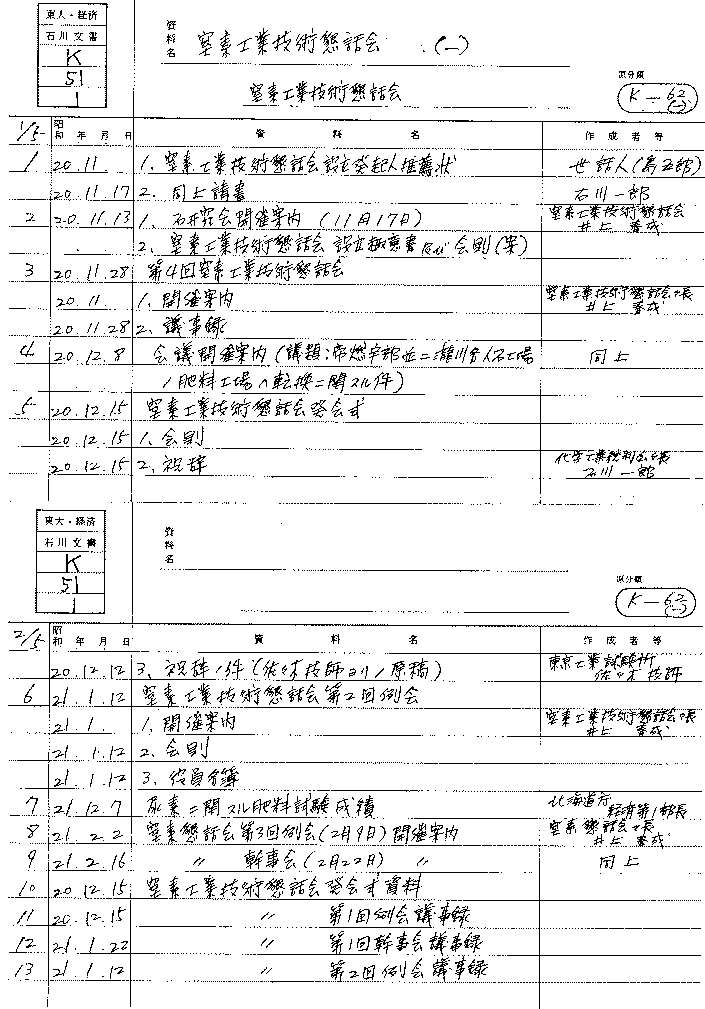 東大・経済
石川文書
K
51
1
資料名 窒素工業技術懇話会 (一)
窒素工業技術懇話会
原分類
K-62
(一)
1/5 昭和 年 月 日 資 料 名 作 成 者 等
1 20.11. 1. 窒素工業技術懇話会設立発起人推薦状 世話人(
20.11.17 2. 同上請書 石川一郎
2 20.11.13 1. 石研究会開催案内 (11月17日) 窒素工業技術懇話会
井上 春成
2. 窒素工業技術懇話会 設立趣意書及ビ会則(案)
3 20.11.28 第4回窒素工業技術懇話会
20.11. 1. 開催案内 窒素工業技術懇話会々長
井上 春成
20.11.28 2. 議事録
4 20.12.8 会議開催案内(議題:帝燃宇部並ニ滝川分人石工場 同上
ノ肥料工場ヘ転換ニ関スル件)
5 20.12.15 窒素工業技術懇話会発会式
20.12.15 1. 会則
20.12.15 2. 祝辞 化学工業統制会々長
石川 一郎
東大・経済
石川文書
K
51
1
資料名
原分類
K-62
(一)
2/5 昭和 年 月 日 資 料 名 作 成 者 等
20.12.12 3. 祝辞ノ件(佐々木技師ヨリノ原稿) 東京工業試験所
佐々木 技師
6 21.1.12 窒素工業技術懇話会第2回例会
21.1. 1. 開催案内 窒素工業技術懇話会々長
井上 春成
21.1.12 2. 会則
21.1.12 3. 役員名簿
7 21.12.7 尿素ニ関スル肥料試験成績 北海道庁
経済第1部長
8 21.2.2 窒素懇話会第3回例会(2月9日)開催案内 窒素懇話会々長
井上 春成
9 21.2.16 〃 幹事会(2月22日) 〃 同上
10 20.12.15 窒素工業技術懇話会発会式資料
11 20.12.15 〃 第1回例会議事録
12 21.1.22 〃 第1回幹事会議事録
13 21.1.12 〃 第2回例会議事録